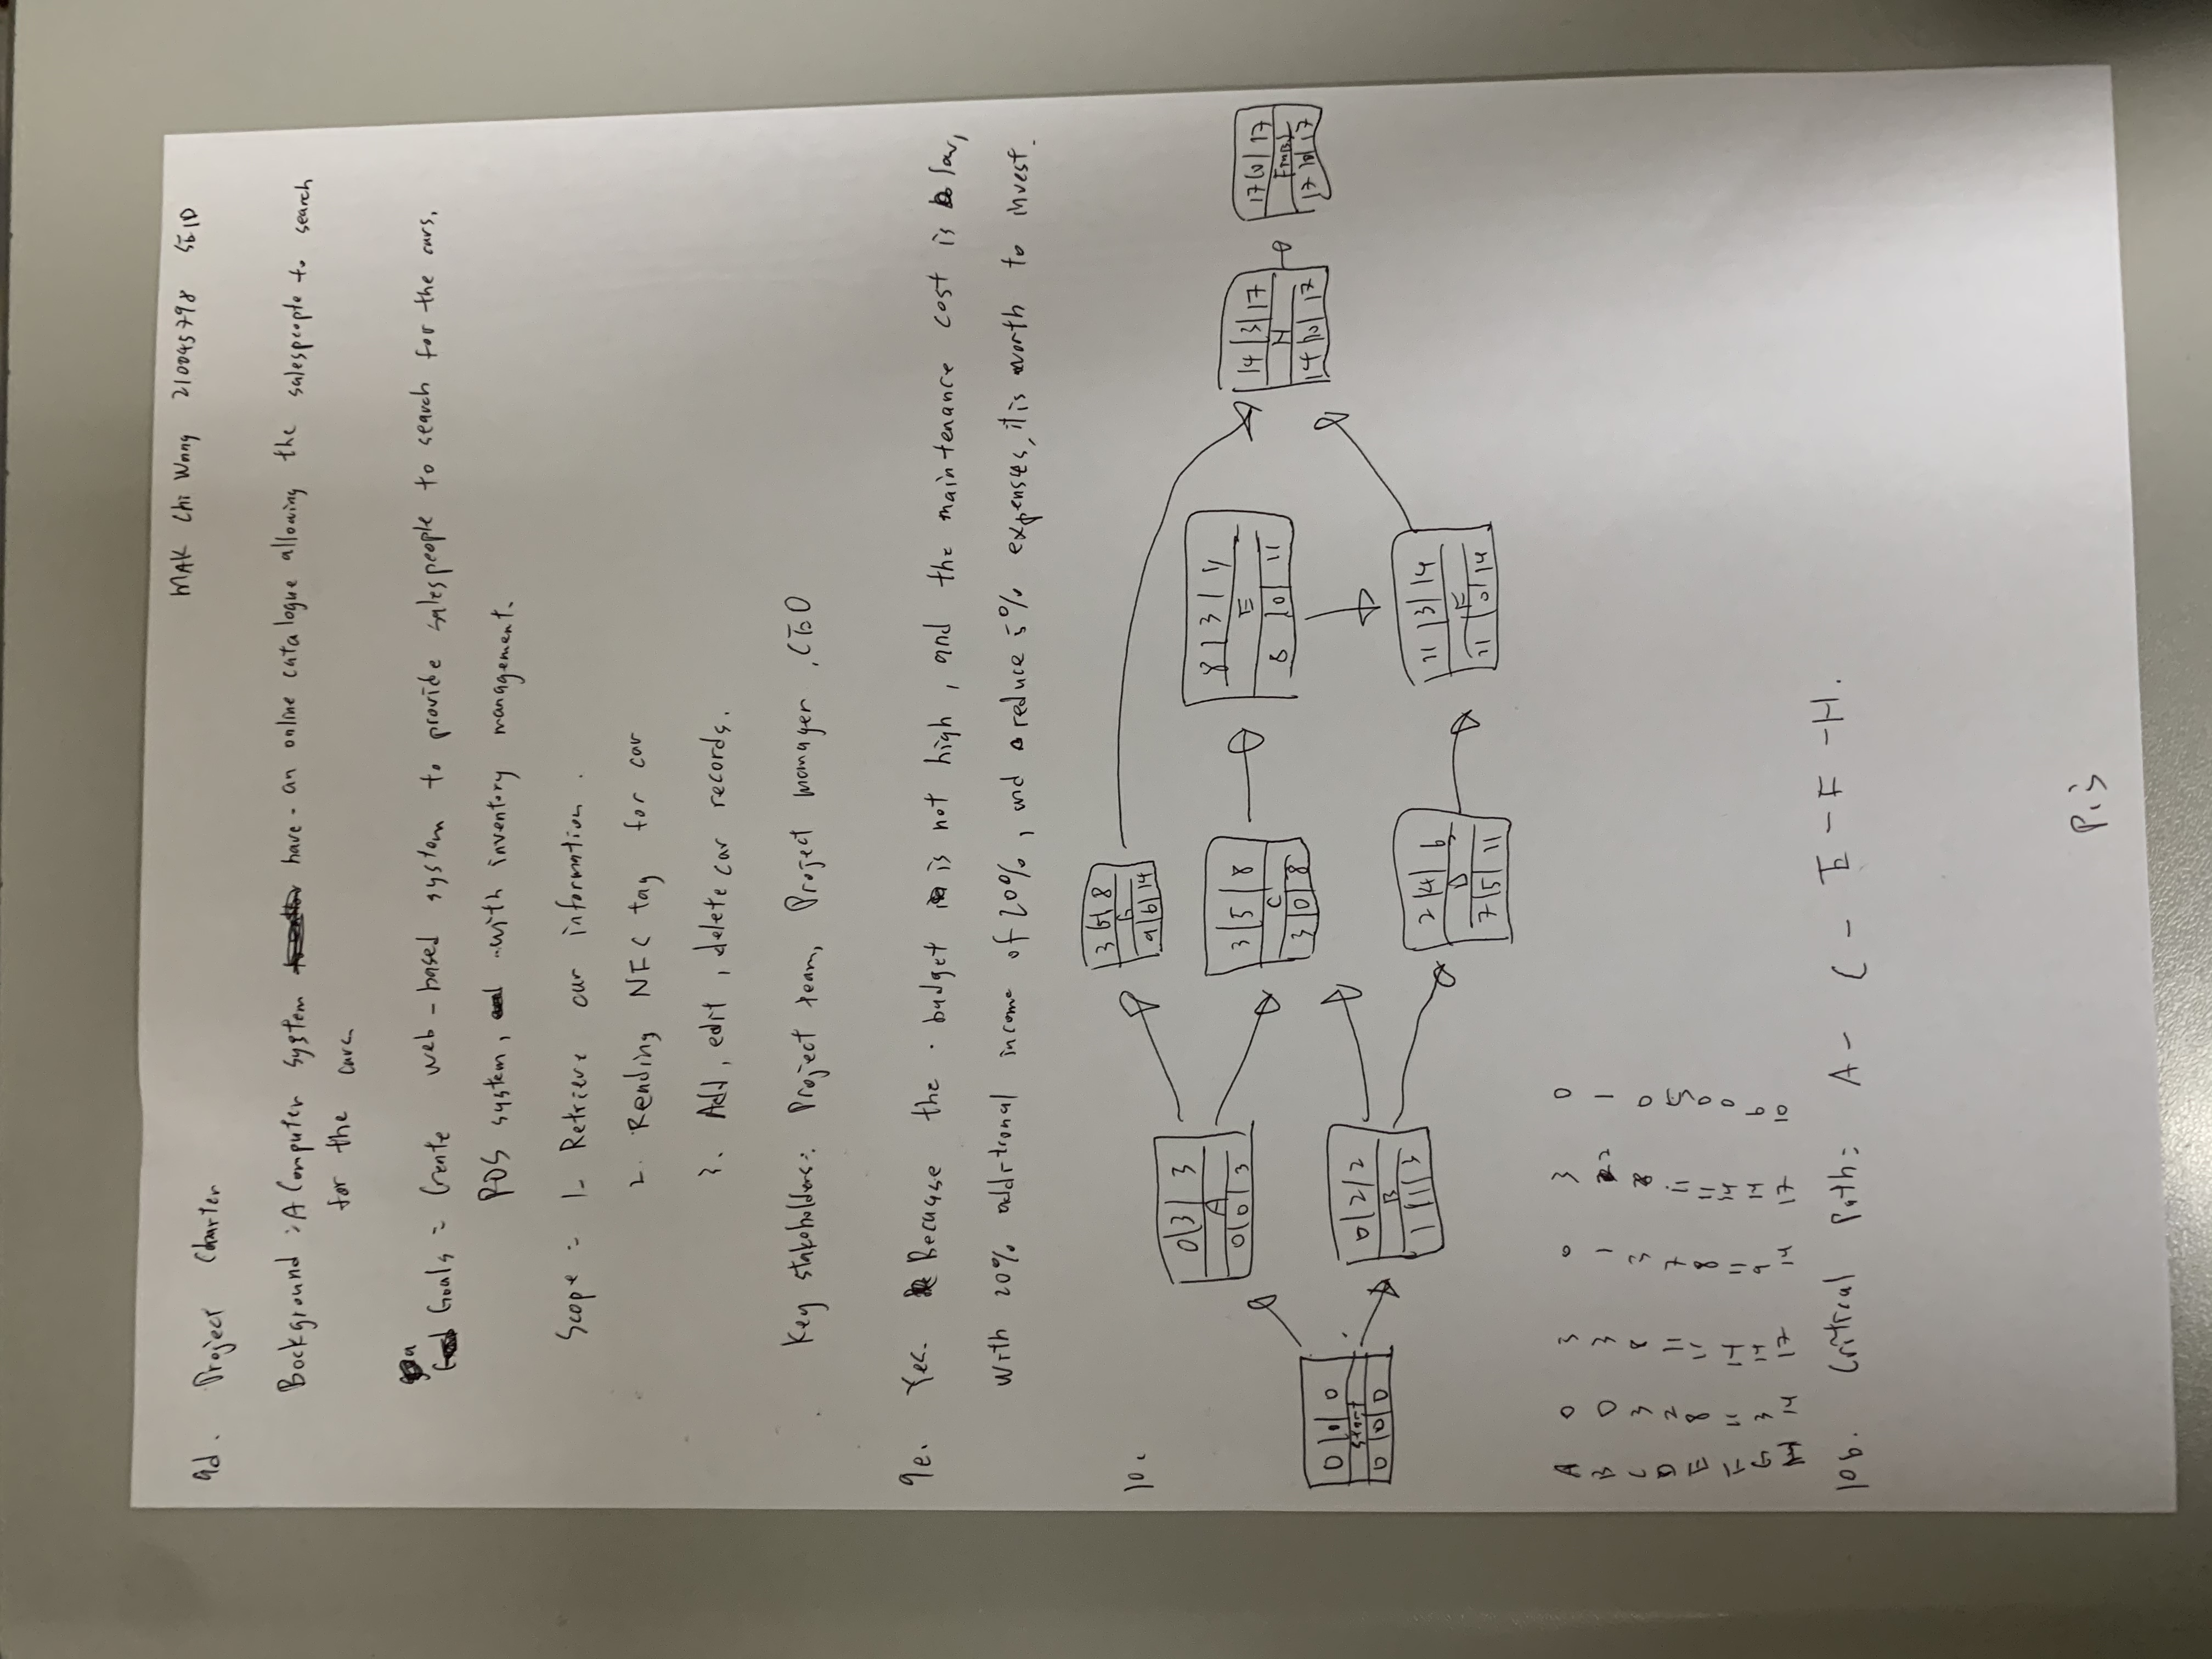 MAK Chi Wang 210045798 SE1D
9d. Project Charter
Background : A Computer system have an online catalogue allowing the salespeople to search
for the cars
Goals = Create web-based system to provide salespeople to search for the cars,
POS system, with inventory management.
Scope = 1. Retrieve car information.
2. Reading NFC tag for car
3. Add, edit, delete car records.
Key stakeholders: Project team, Project manager, CEO
9e. Yes. Because the budget is not high, and the maintenance cost is low,
with 20% additional income of 20%, and reduce 5% expenses, it is worth to invest.
10.
3 | | 8
G
9 | 6 | 14
0 | 3 | 3
A
0 | 0 | 3
3 | 5 | 8
C
3 | 0 | 8
8 | 3 | 11
E
8 | 0 | 11
14 | 3 | 17
H
14 | 0 | 17
17 | 0 | 17
17 | 0 | 17
0 | 0 | 0
Start
0 | 0 | 0
0 | 2 | 2
B
1 | 1 | 3
2 | 4 | 6
D
7 | 5 | 11
11 | 3 | 14
F
11 | 0 | 14
A 0 3 0 3 0
B 0 3 1 2 1
C 3 8 3 8 0
D 2 11 7 11 5
E 8 11 8 11 0
F 11 14 11 14 0
G 3 14 9 14 6
H 14 17 14 17 10
10b. Critical Path: A - C - E - F - H.
P.3